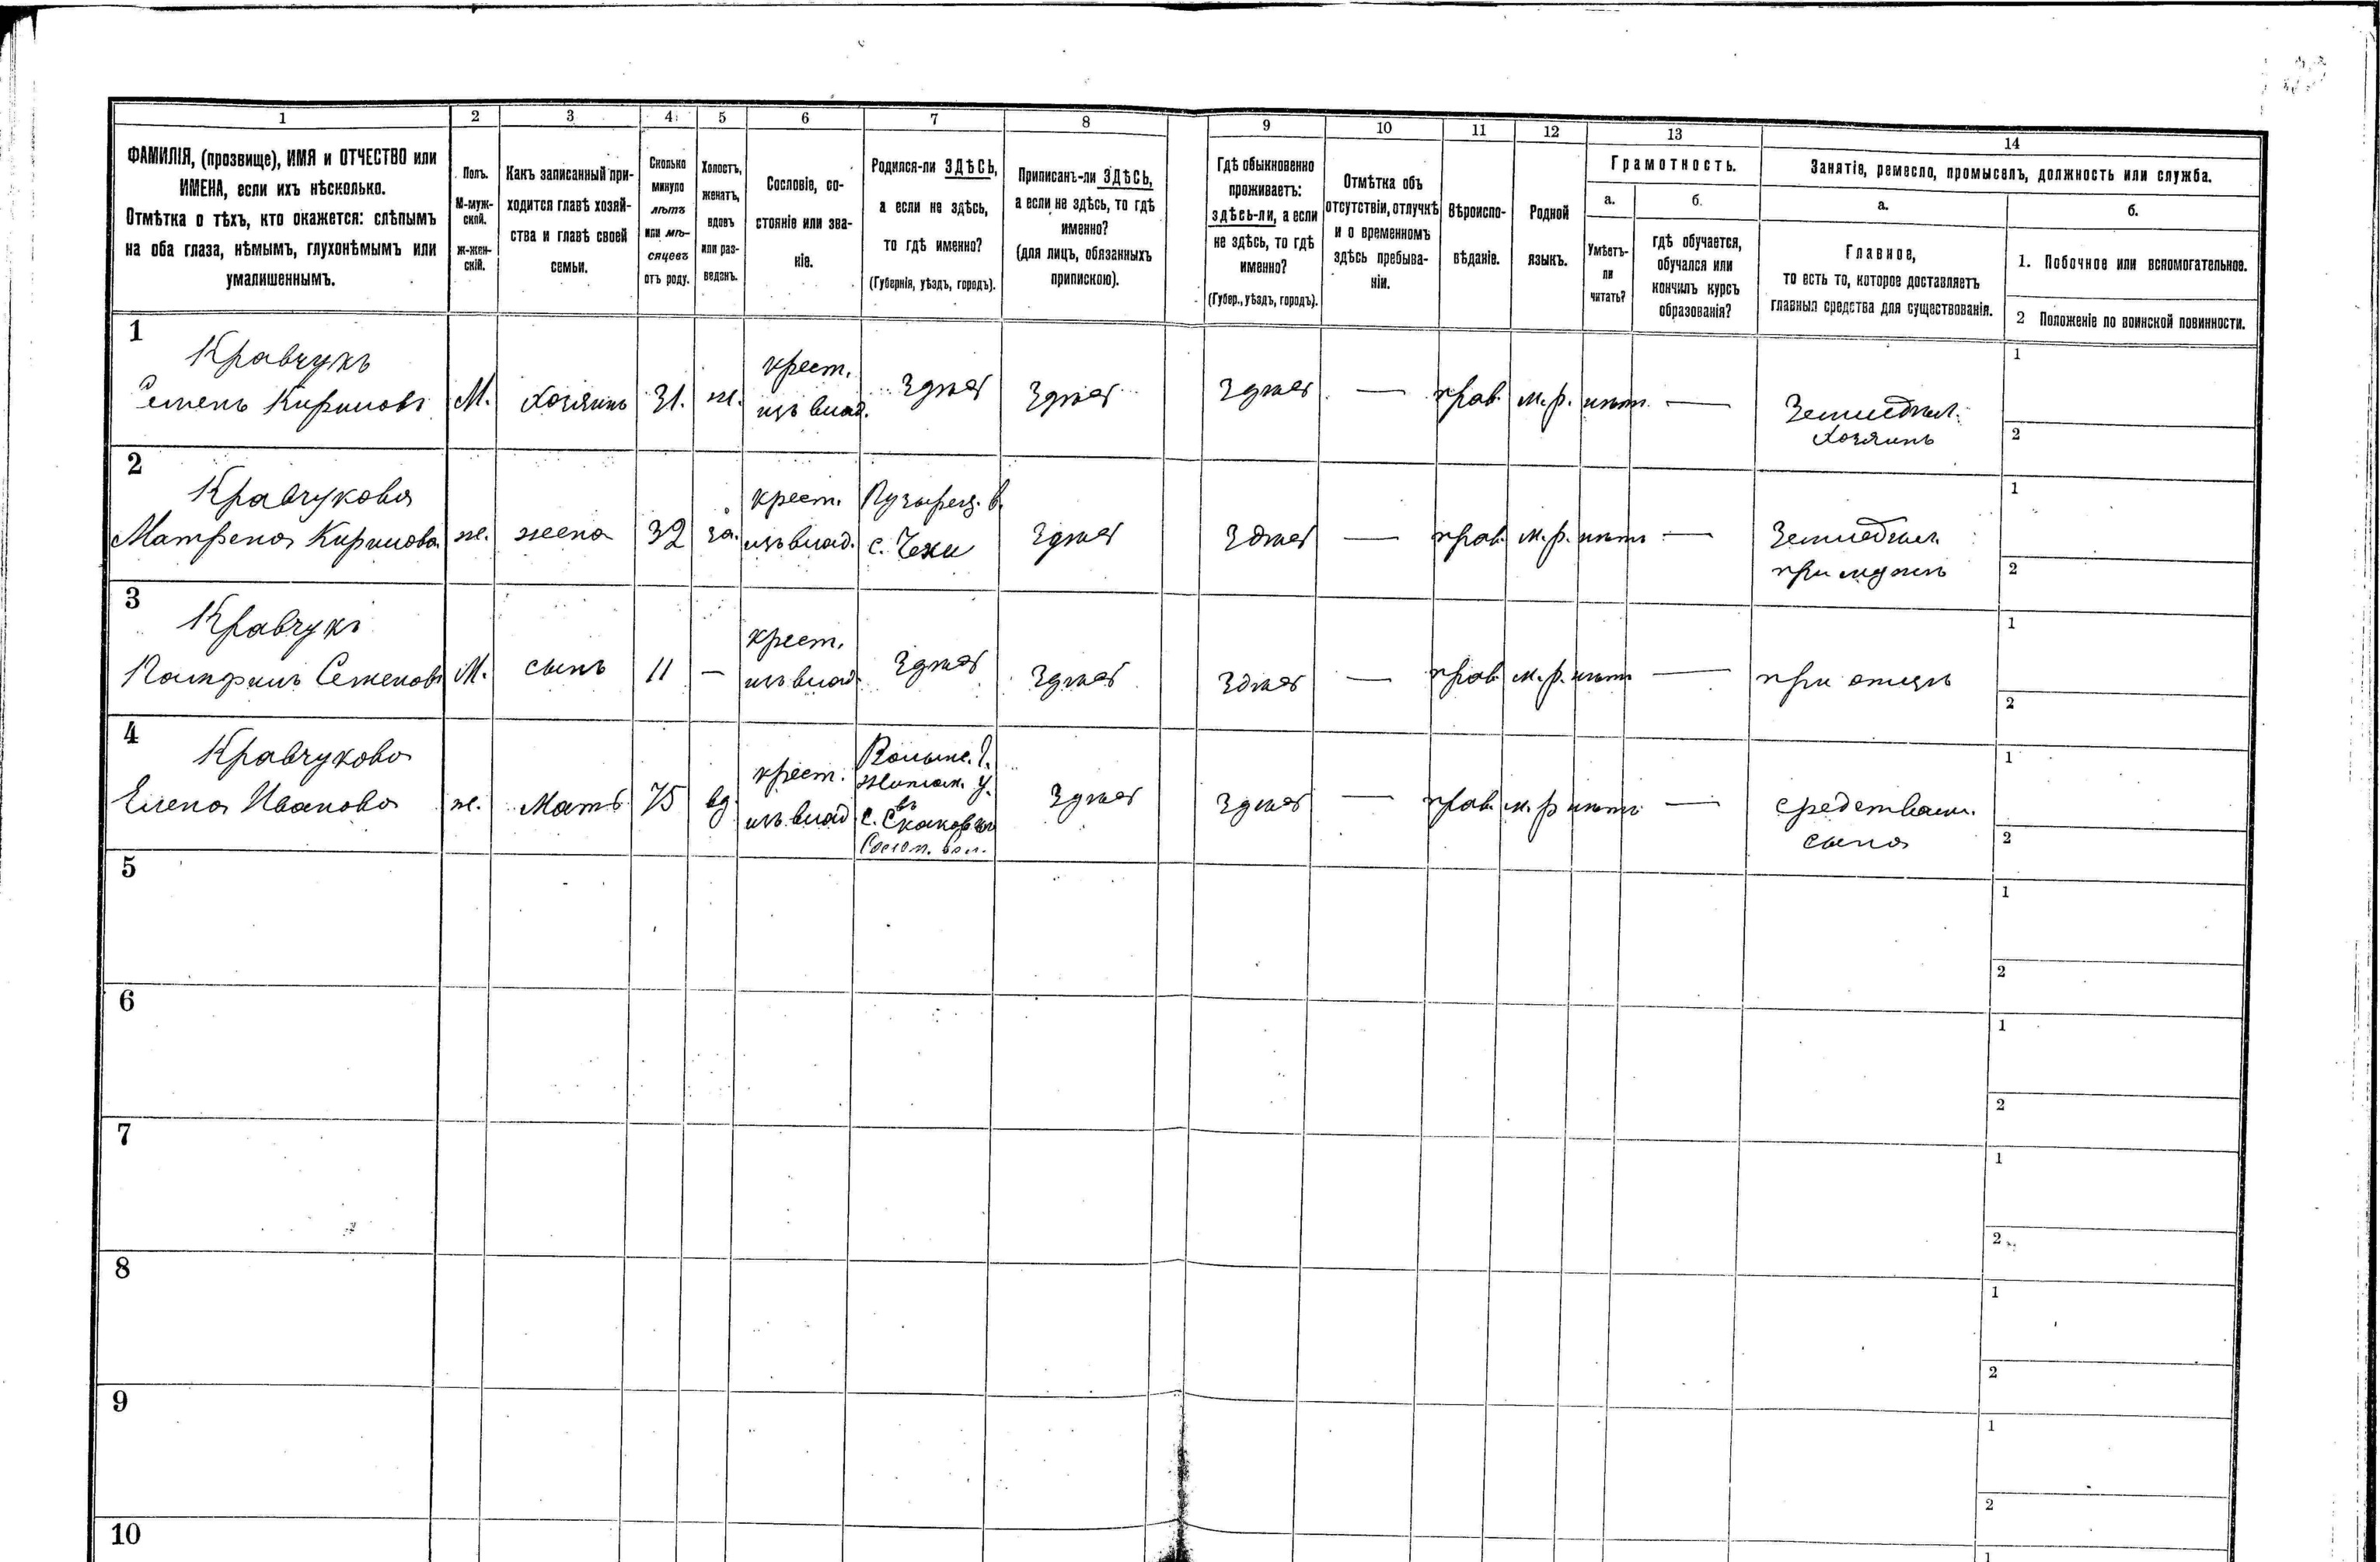 1 2 3 4 5 6 7 8 9 10 11 12 13 14
ФАМИЛІЯ, (прозвище), ИМЯ и ОТЧЕСТВО или
ИМЕНА, если ихъ нѣсколько.
Отмѣтка о тѣхъ, кто окажется: слѣпымъ
на оба глаза, нѣмымъ, глухонѣмымъ или
умалишеннымъ.
Полъ.
М-муж-
ской.
ж-жен-
скій.
Какъ записанный при-
ходится главѣ хозяй-
ства и главѣ своей
семьи.
Сколько
минуло
лѣтъ
или мѣ-
сяцевъ
отъ роду.
Холостъ,
женатъ,
вдовъ
или раз-
веденъ.
Сословіе, со-
стояніе или зва-
ніе.
Родился-ли ЗДѢСЬ,
а если не здѣсь,
то гдѣ именно?
(Губернія, уѣздъ, городъ).
Приписанъ-ли ЗДѢСЬ,
а если не здѣсь, то гдѣ
именно?
(для лицъ, обязанныхъ
припискою).
Гдѣ обыкновенно
проживаетъ:
здѣсь-ли, а если
не здѣсь, то гдѣ
именно?
(Губер., уѣздъ, городъ).
Отмѣтка объ
отсутствіи, отлучкѣ
и о временномъ
здѣсь пребыва-
ніи.
Вѣроиспо-
вѣданіе.
Родной
языкъ.
Грамотность.
а.
Умѣетъ-
ли
читать?
б.
гдѣ обучается,
обучался или
кончилъ курсъ
образованія?
Занятіе, ремесло, промыселъ, должность или служба.
а.
Главное,
то есть то, которое доставляетъ
главныя средства для существованія.
б.
1. Побочное или вспомогательное.
2 Положеніе по воинской повинности.
1
Кравчукъ
Семенъ Кириловъ
М.
хозяинъ
31.
ж.
крест.
изъ влад.
Здѣсь
Здѣсь
Здѣсь
—
прав.
м.р.
нѣтъ
—
Земледѣл.
хозяинъ
1
2
2
Кравчукова
Матрена Кирилова
ж.
жена
32
за.
крест.
изъ влад.
с. Чехи
Здѣсь
Здѣсь
—
прав.
м.р.
нѣтъ
—
Земледѣл.
при мужѣ
1
2
3
Кравчукъ
Памфилъ Семеновъ
М.
сынъ
11
—
крест.
изъ влад.
Здѣсь
Здѣсь
Здѣсь
—
прав.
м.р.
нѣтъ
—
при отцѣ
1
2
4
Кравчукова
Елена Иванова
ж.
Мать
75
вд.
крест.
изъ влад
Волынс. г.
Житом. у.
въ
с.
Здѣсь
Здѣсь
—
прав.
м.р
нѣтъ
—
средствами
сына
1
2
5
1
2
6
1
2
7
1
2
8
1
2
9
1
2
10
1